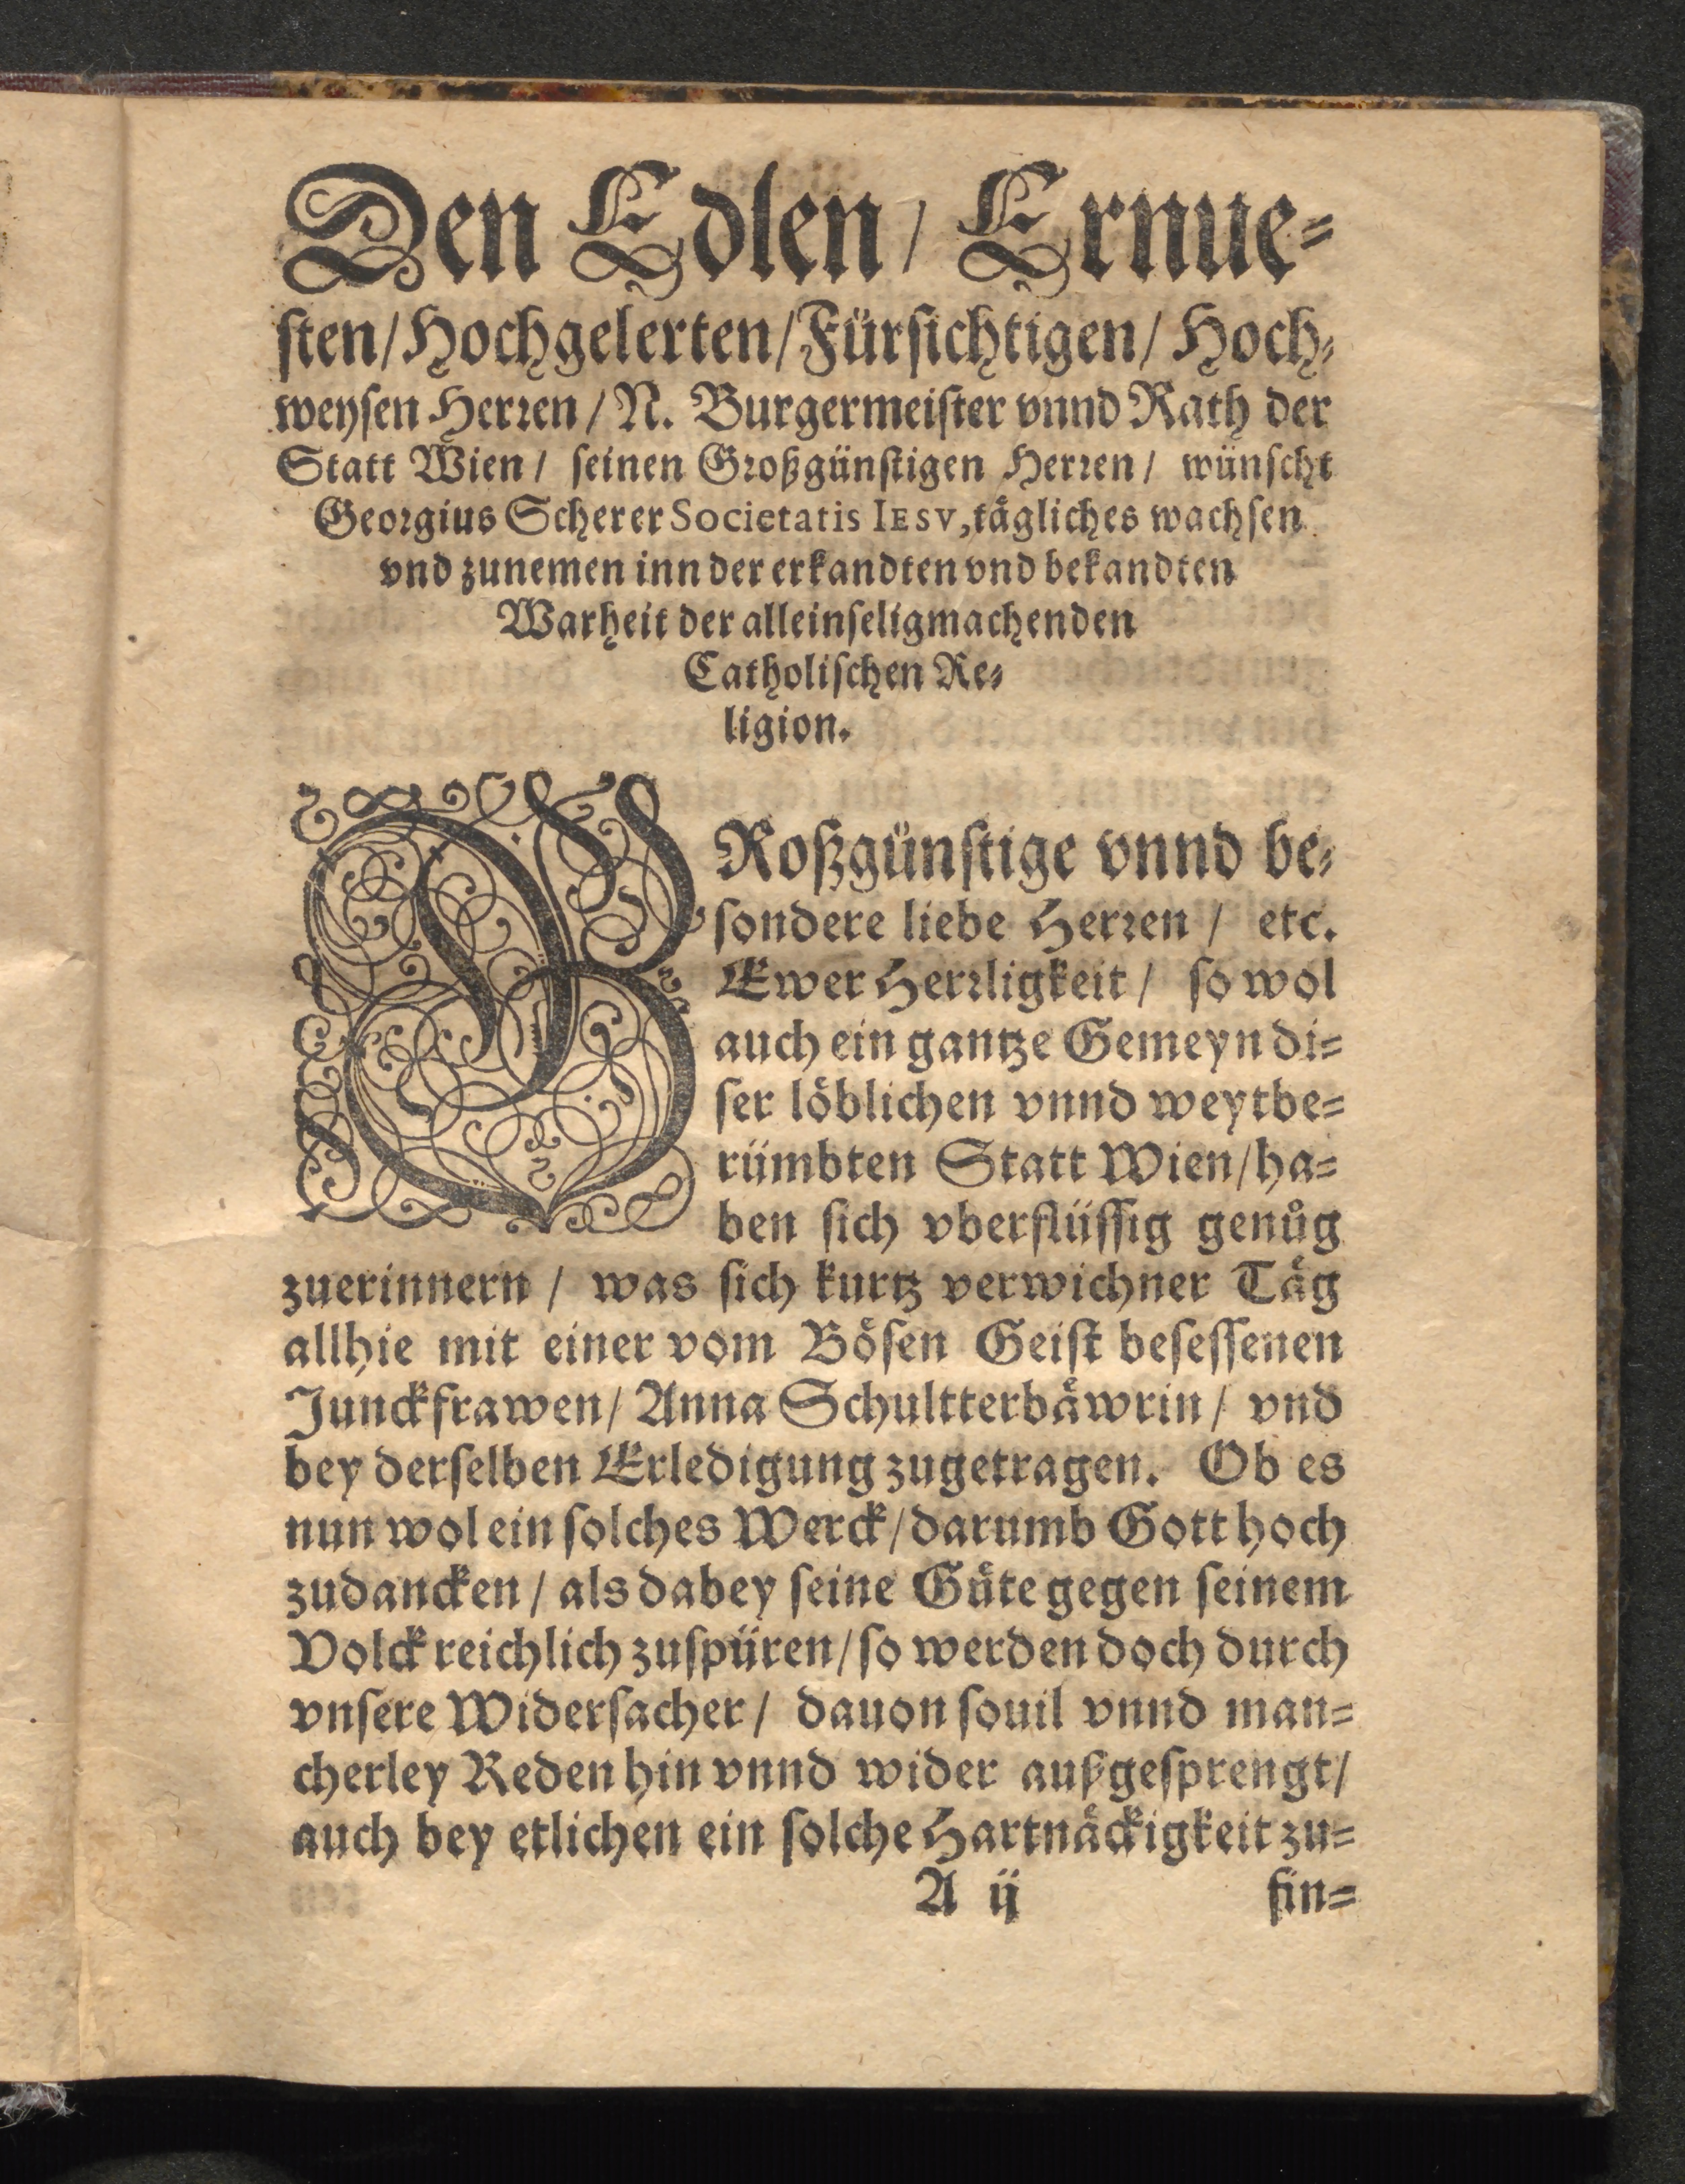 Den Edlen / Ernue=
ſten / Hochgelerten / Fürſichtigen / Hoch=
weyſen Herꝛen / N. Burgermeiſter vnnd Rath der
Statt Wien / ſeinen Gꝛoßgünſtigen Herꝛen / wünſcht
Geoꝛgius Scherer Societatis IESV, tägliches wachſen
vnd zunemen inn der erkandten vnd bekandten
Warheit der alleinſeligmachenden
Catholiſchen Re=
ligion.
GRoßgünſtige vnnd be=
ſondere liebe Herꝛen / etc.
Ewer Herꝛligkeit / ſo wol
auch ein gantze Gemeyn di=
ſer löblichen vnnd weytbe=
rümbten Statt Wien / ha=
ben ſich vberflüſſig genůg
zuerinnern / was ſich kurtz verwichner Täg
allhie mit einer vom Böſen Geiſt beſeſſenen
Junckfrawen / Anna Schultterbäwrin / vnd
bey derſelben Erledigung zugetragen. Ob es
nun wol ein ſolches Werck / darumb Gott hoch
zudancken / als dabey ſeine Güte gegen ſeinem
Volck reichlich zuſpüren / ſo werden doch durch
vnſere Widerſacher / dauon ſouil vnnd man=
cherley Reden hin vnnd wider außgeſprengt /
auch bey etlichen ein ſolche Hartnäckigkeit zu=
A ij fin=